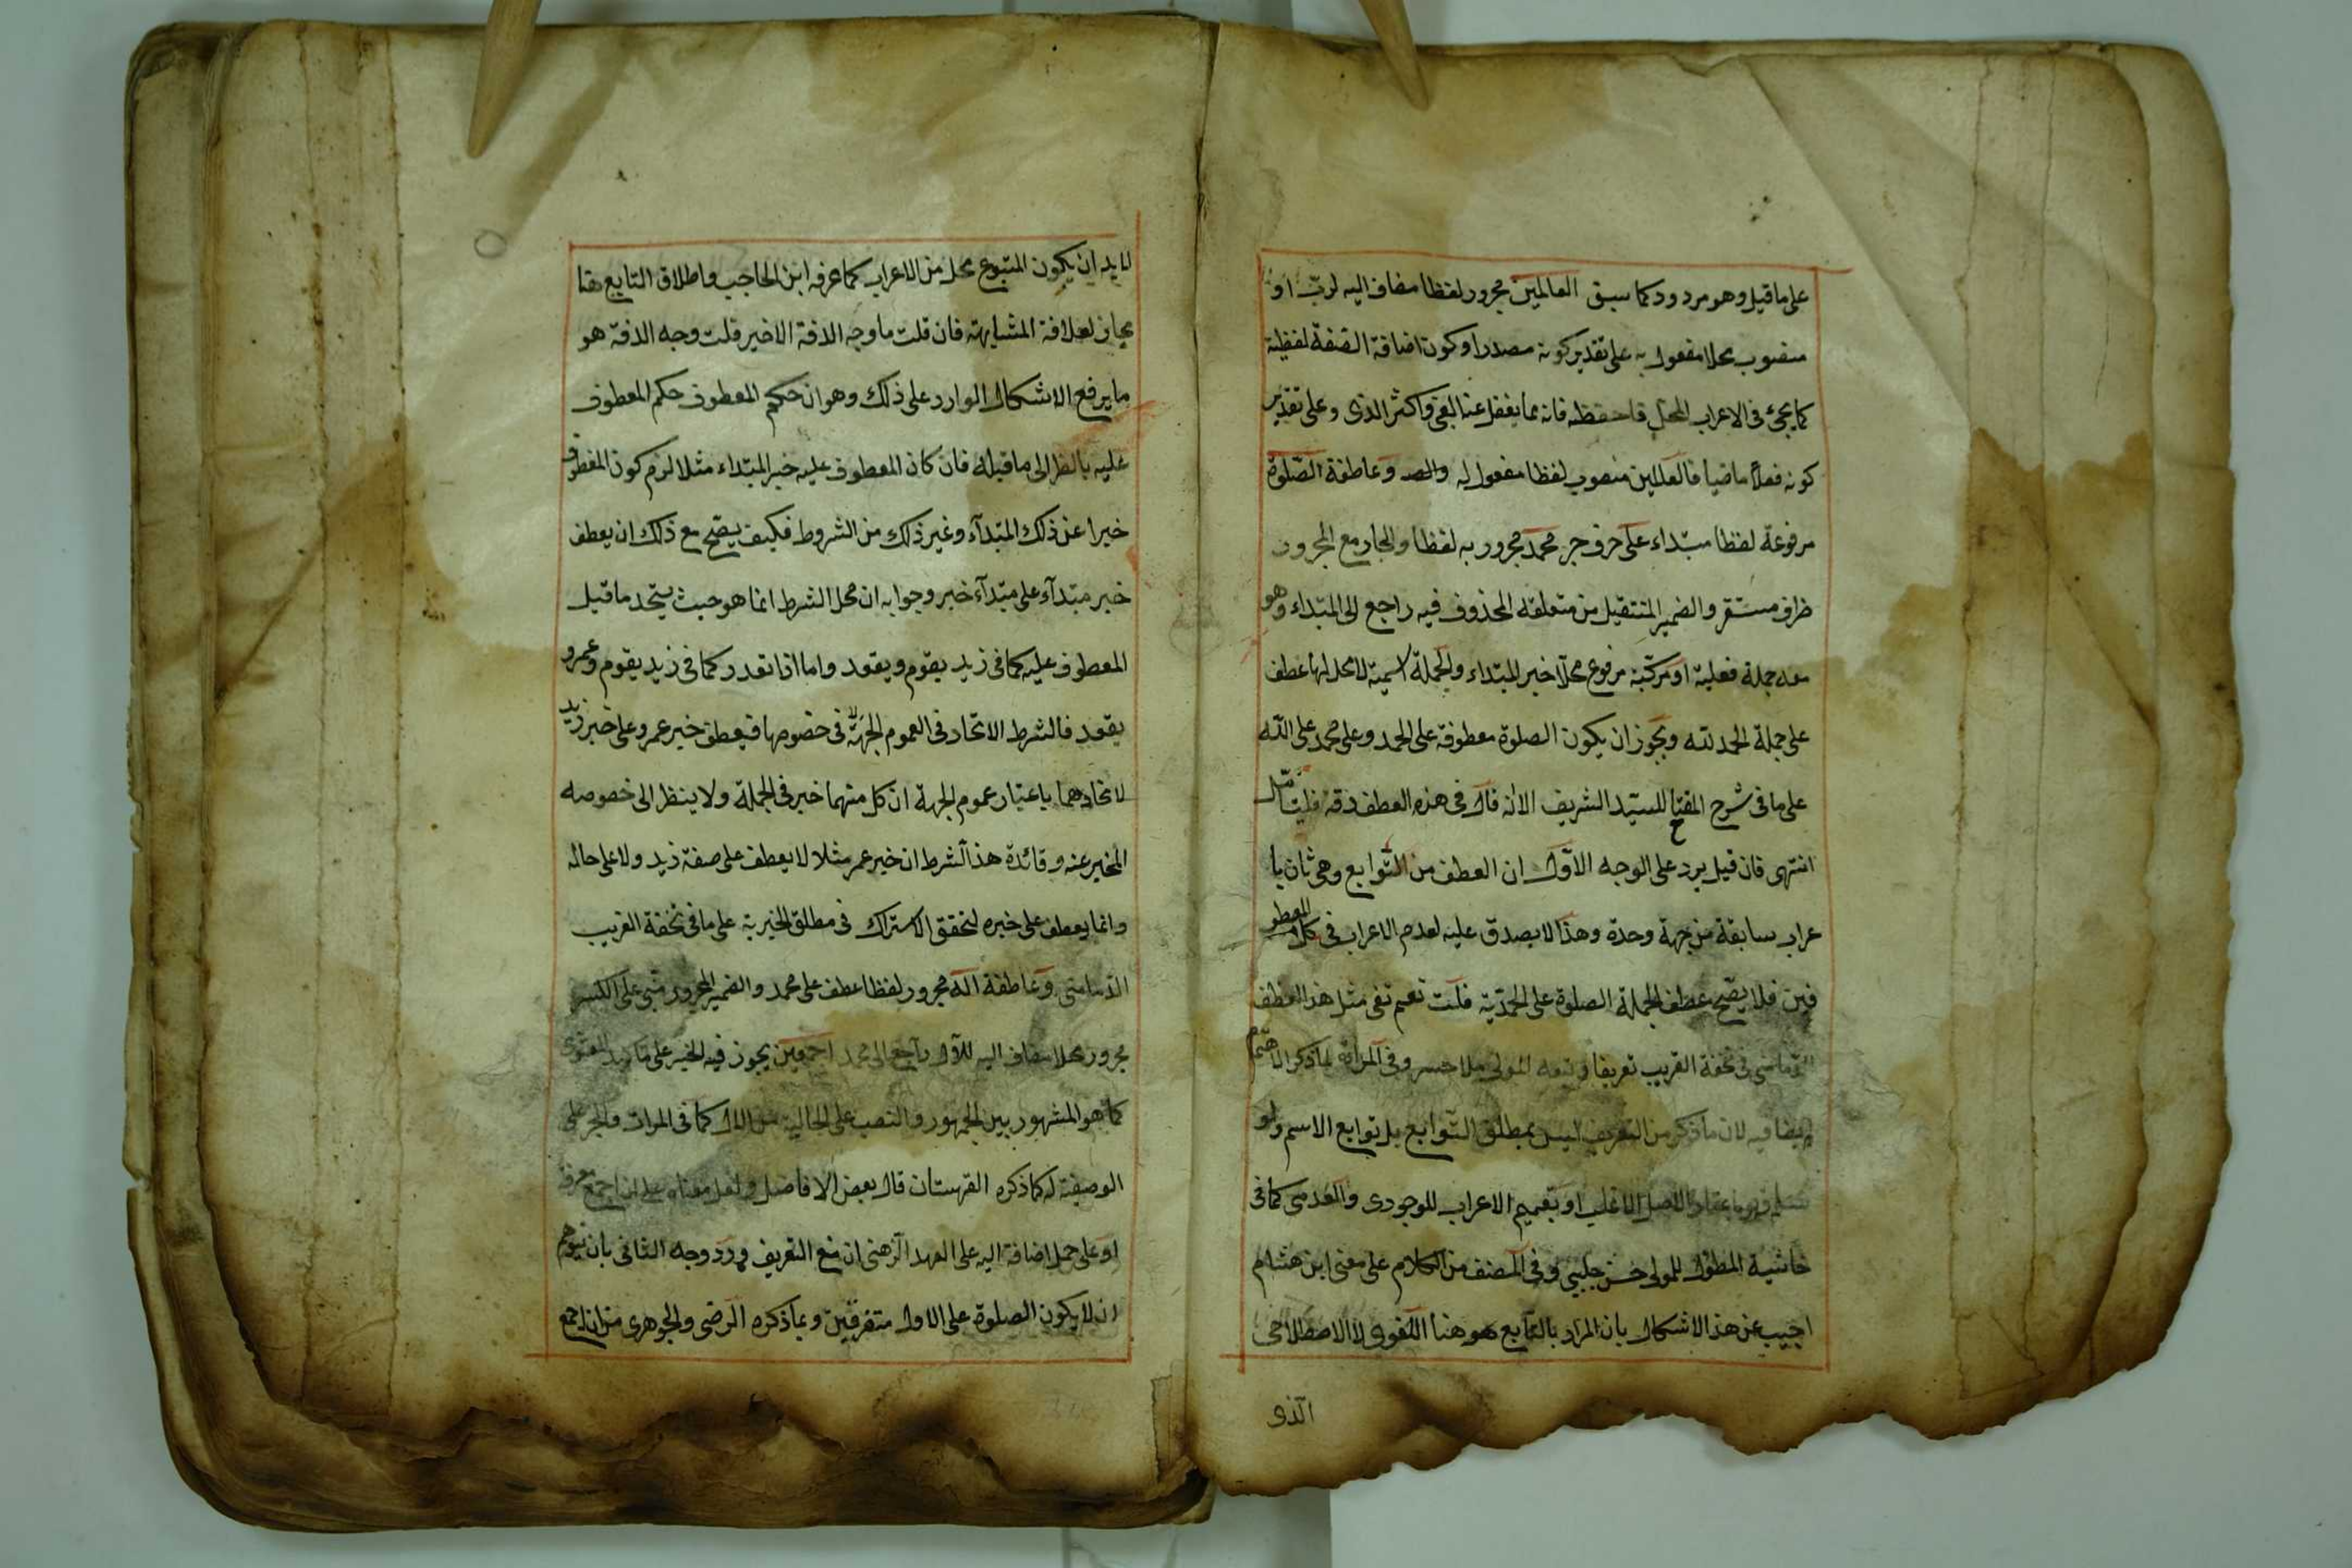 على ما قيل وهو مردود كما سبق العالمين مجرور لفظا مضاف اليه لربّ او
منصوب محلا مفعول به على تقدير كونه مصدرا وكون اضافة الصفة لفظية
كما يجئ في الاعراب المحلى فاحفظه فانه مما يغفل عنه الغبي واكثر الذكى وعلى تقدير
كونه فعلا ماضيا فالعالمين منصوب لفظا مفعول له والصـ وعاطفة الصّلوة
مرفوعة لفظا مبتداء على حرف جر محمد مجرور به لفظا والجار مع المجرور
ظرف مستقر والضمير المنتقل من متعلقه المحذوف فيه راجع الى المبتداء وهو
معه جملة فعلية او مركبة مرفوع محلا خبر المبتداء والجملة اسمية لا محل لها عطف
على جملة الحمد لله ويجوز ان يكون الصلوة معطوفة على الحمد وعلى محمد على الله
على ما في شرح المفتاح للسيد الشريف الا انه قال في هذه العطف دقة فليتأمّل
انتهى فان قيل يرد على الوجه الاوّل ان العطف من التّوابع وهى ثان با
عراب سابقة من جهة وحدة وهذا لا يصدق عليه لعدم الاعراب في كل المعطو
فين فلا يصّح عطف الجملة الصلوة على الحمدية قلت نعم تفى مثل هذا العطف
الدّمامينى في تحفة الغريب تعريفا وتبعه المولى ملا خسرو وفي المرآة بما ذكر الا هتم
ايضا فيه لان ما ذكر من التعريف ليس بمطلق التّوابع بل توابع الاسم ولو
سلم فهو باعتبار الاصل الاغلب او بتعميم الاعراب للوجودى والعدمى كما في
حاشية المطوّل للمولى حسن جلبي وفي المصنف من الكلام على مغنى ابن هشام
اجيب عن هذا الاشكال بان المراد بالتّابع هو هنا اللّغوى لا الاصطلاحى
الّذى
لا بد ان يكون المتبوع محل من الاعراب كما عرفه ابن الحاجب واطلاق التابع هنا
مجاز لعلاقة المشابهة فان قلت ما وجه الدقة الاخير قلت وجه الدقة هو
ما يرفع الاشكال الوارد على ذلك وهو ان حكم المعطوف حكم المعطوف
عليه بالنظر الى ما قبله فان كان المعطوف عليه خبر المبتداء مثلا لزم كون المعطوف
خبرا عن ذلك المبتدآء وغير ذلك من الشروط فكيف يصّح مع ذلك ان يعطف
خبر مبتدآء على مبتدآء خبر وجوابه ان محل الشرط انما هو حيث يتحد ما قبل
المعطوف عليه كما في زيد يقوم ويقعد واما اذا تعدد كما في زيد يقوم وعمرو
يقعد فالشرط الاتحاد في العموم الجهة لا في خصوصها فيعطف خبر عمرو على خبر زيد
لاتحادهما باعتبار عموم الجهة ان كل منهما خبر في الجملة ولا ينظر الى خصوصه
المخبر عنه وفائدة هذا الشرط ان خبر عمر مثلا لا يعطف على صفة زيد ولا على حاله
وانما يعطف على خبره لتحقق الاشتراك في مطلق الخبرية على ما في تحفة الغريب
الدّمامينى وعاطفة اله مجرور لفظا عطف على محمد والضمير المجرور مبنى على الكسر
مجرور محلا مضاف اليه للآل راجع الى محمد اجمعين يجوز فيه الجر على تأكيد المعنوى
كما هو المشهور بين الجمهور والنصب على الحالية من الال كما في المرات والجر على
الوصفية له كما ذكره القهستان قال بعض الافاضل ولعل معناه على ان اجمع معرفة
او على حمل اضافة اليه على العهد الذهنى ان منع التعريف وردّ وجه الثانى بان يتوهم
ان لا يكون الصلوة على الاول متفرقين وبما ذكره الرضى والجوهرى من ان اجمع